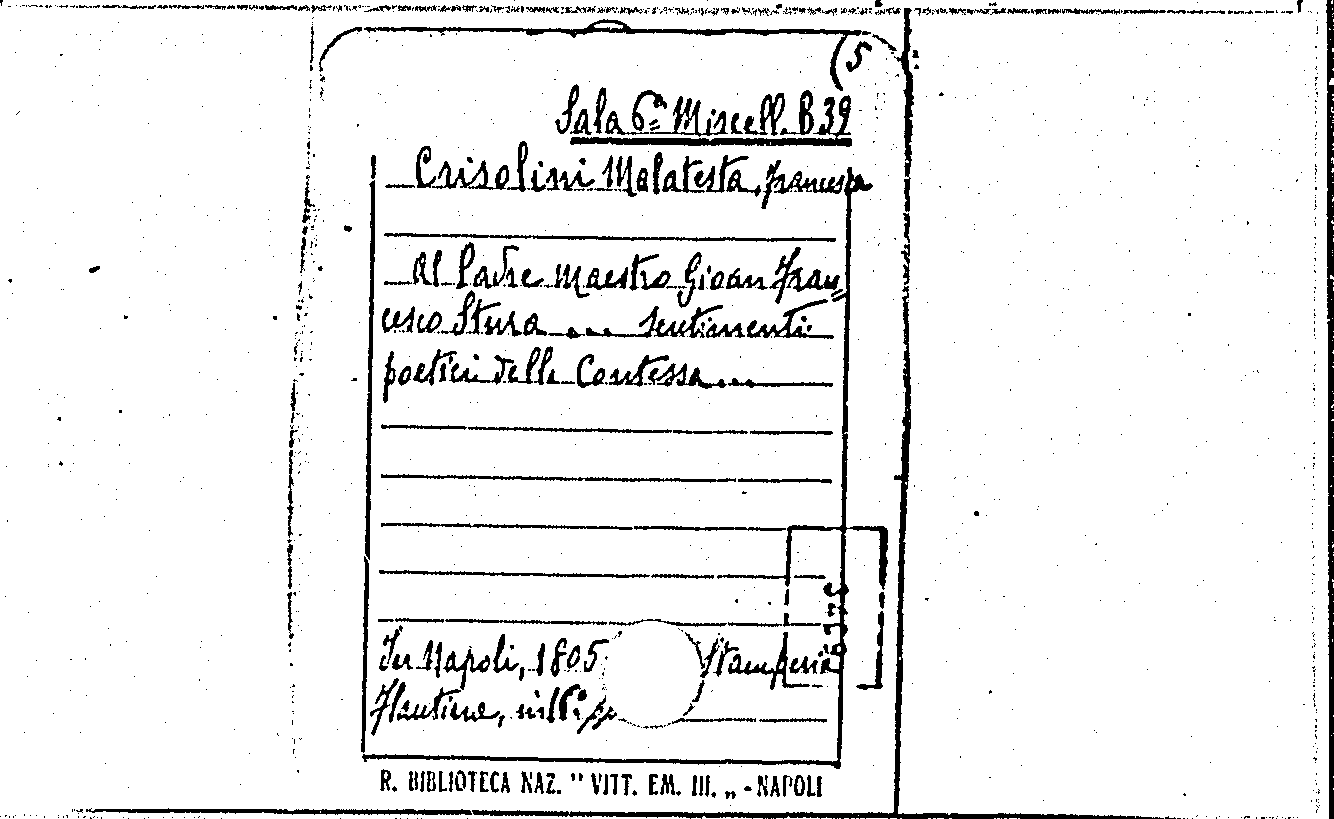 (5
Sala 6ª Miscell. B39
Crisolini Malatesta, Francesca
Al Padre Maestro Gioan Fran=
cesco Stura ... sentimenti
poetici della Contessa ...
In Napoli, 1805 Stamperia
Flautina, in
R. BIBLIOTECA NAZ. " VITT. EM. III. „ - NAPOLI